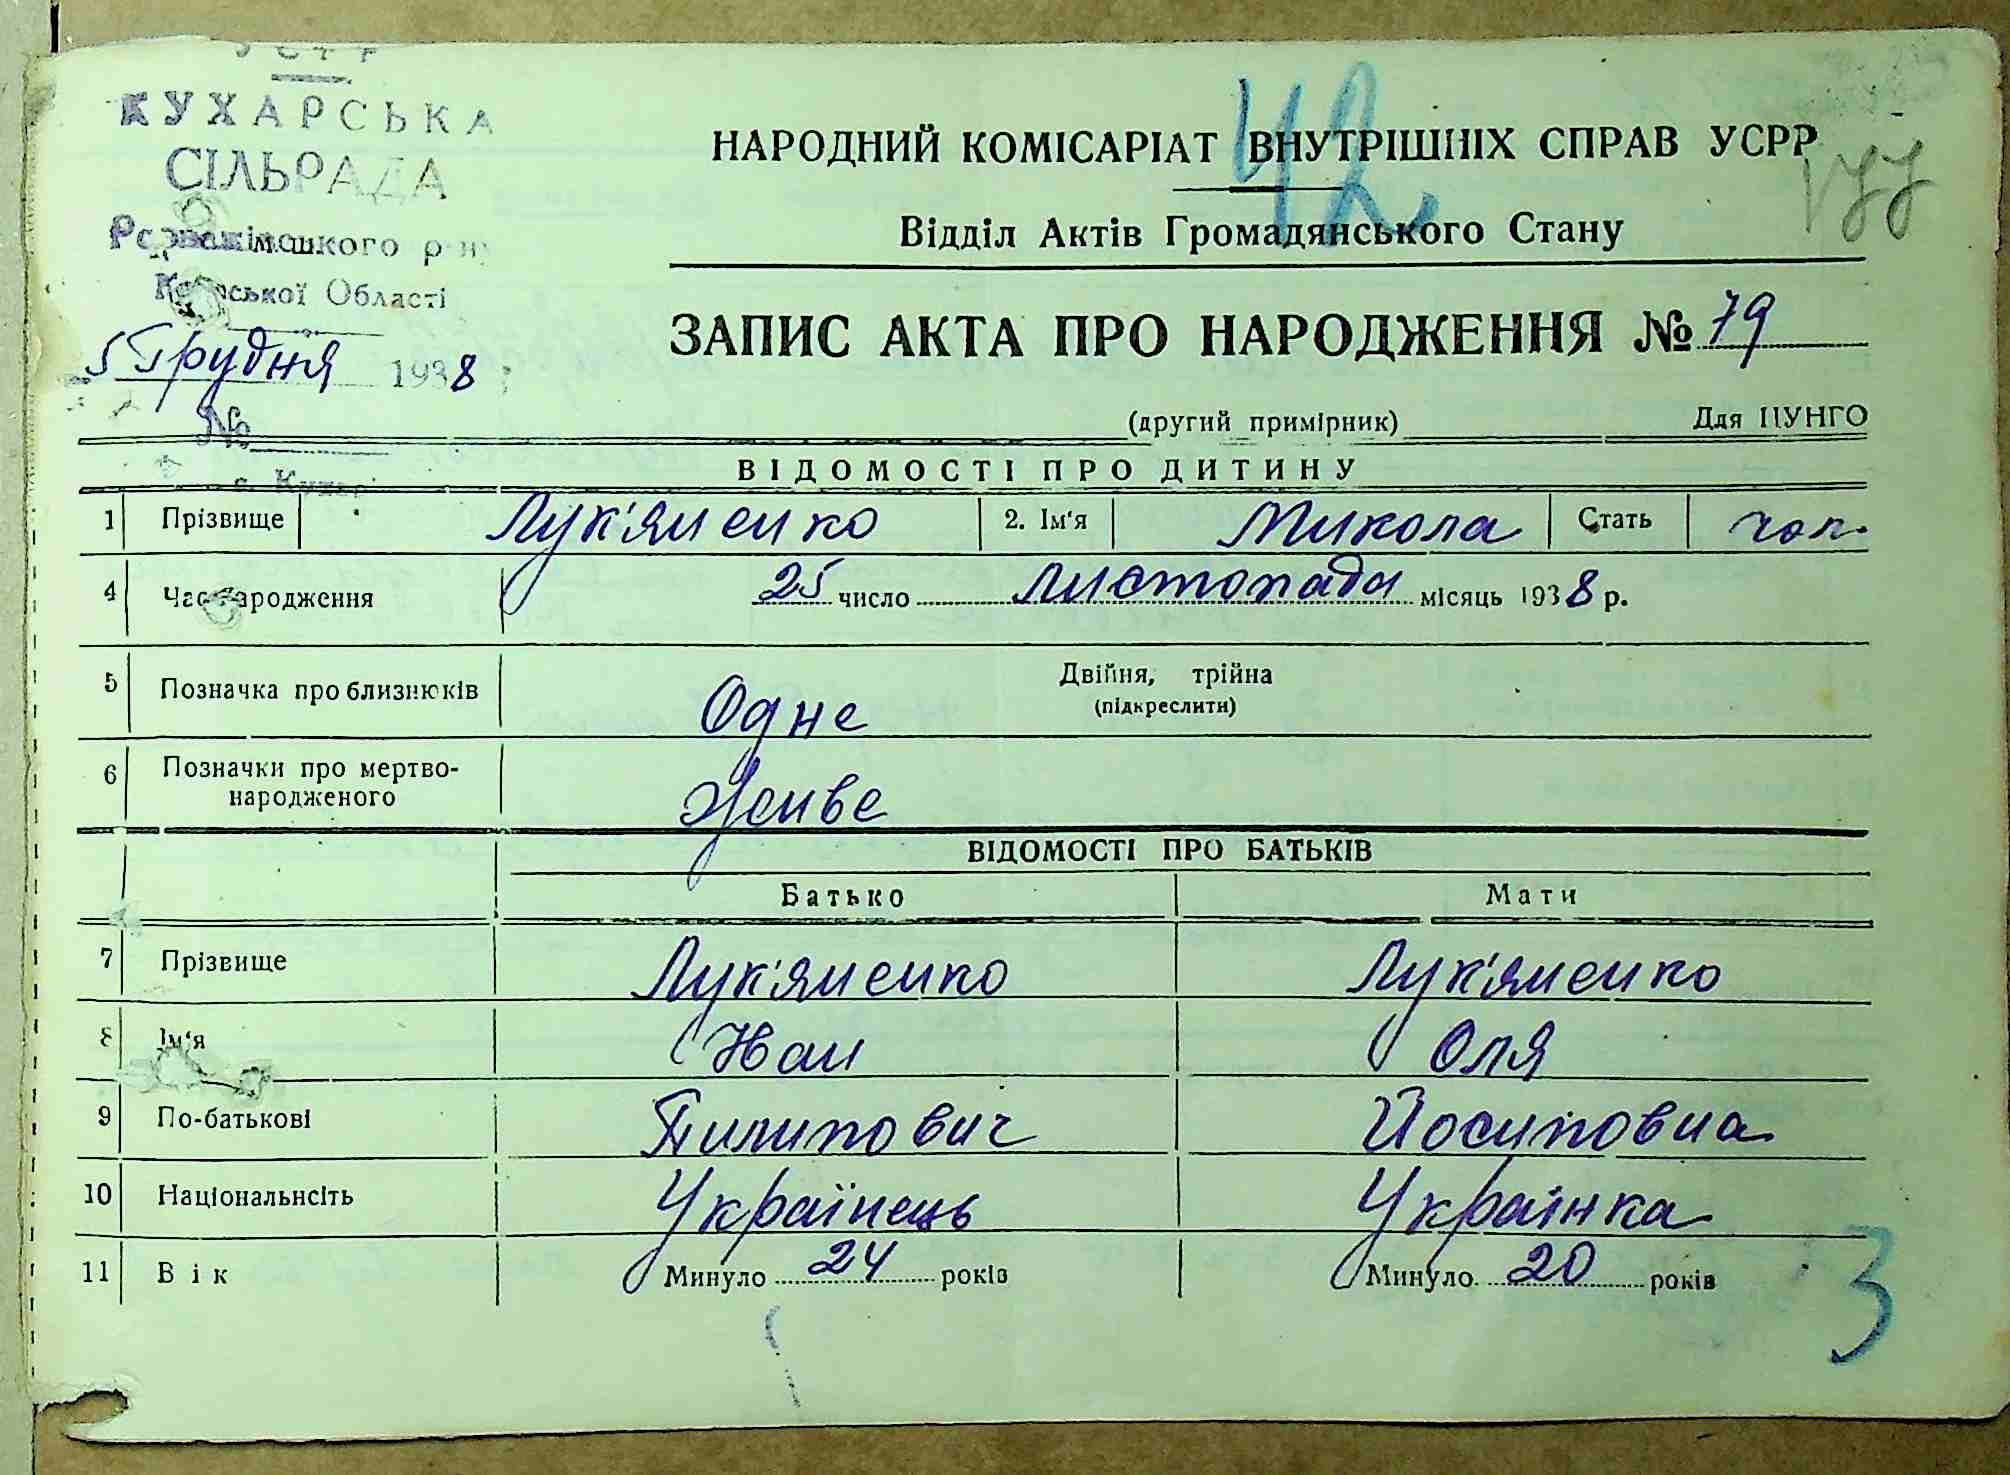 УСРР
КУХАРСЬКА
СІЛЬРАДА
Розважівського р-ну
Київської Області
5 Грудня 1938
№
с. Кухарі
42
177
НАРОДНИЙ КОМІСАРІАТ ВНУТРІШНІХ СПРАВ УСРР
Відділ Актів Громадянського Стану
ЗАПИС АКТА ПРО НАРОДЖЕННЯ № 79
(другий примірник) Для ЦУНГО
ВІДОМОСТІ ПРО ДИТИНУ
1 Прізвище Лук'яненко 2. Ім'я Микола Стать чол.
4 Час народження 25 число листопада місяць 1938 р.
5 Позначка про близнюків Одне Двійня, трійна
(підкреслити)
6 Позначки про мертво-
народженого Живе
ВІДОМОСТІ ПРО БАТЬКІВ
Батько Мати
7 Прізвище Лук'яненко Лук'яненко
8 Ім'я Іван Оля
9 По-батькові Пилипович Йосиповна
10 Національнсіть Українець Українка
11 Вік Минуло 24 років Минуло 20 років
3